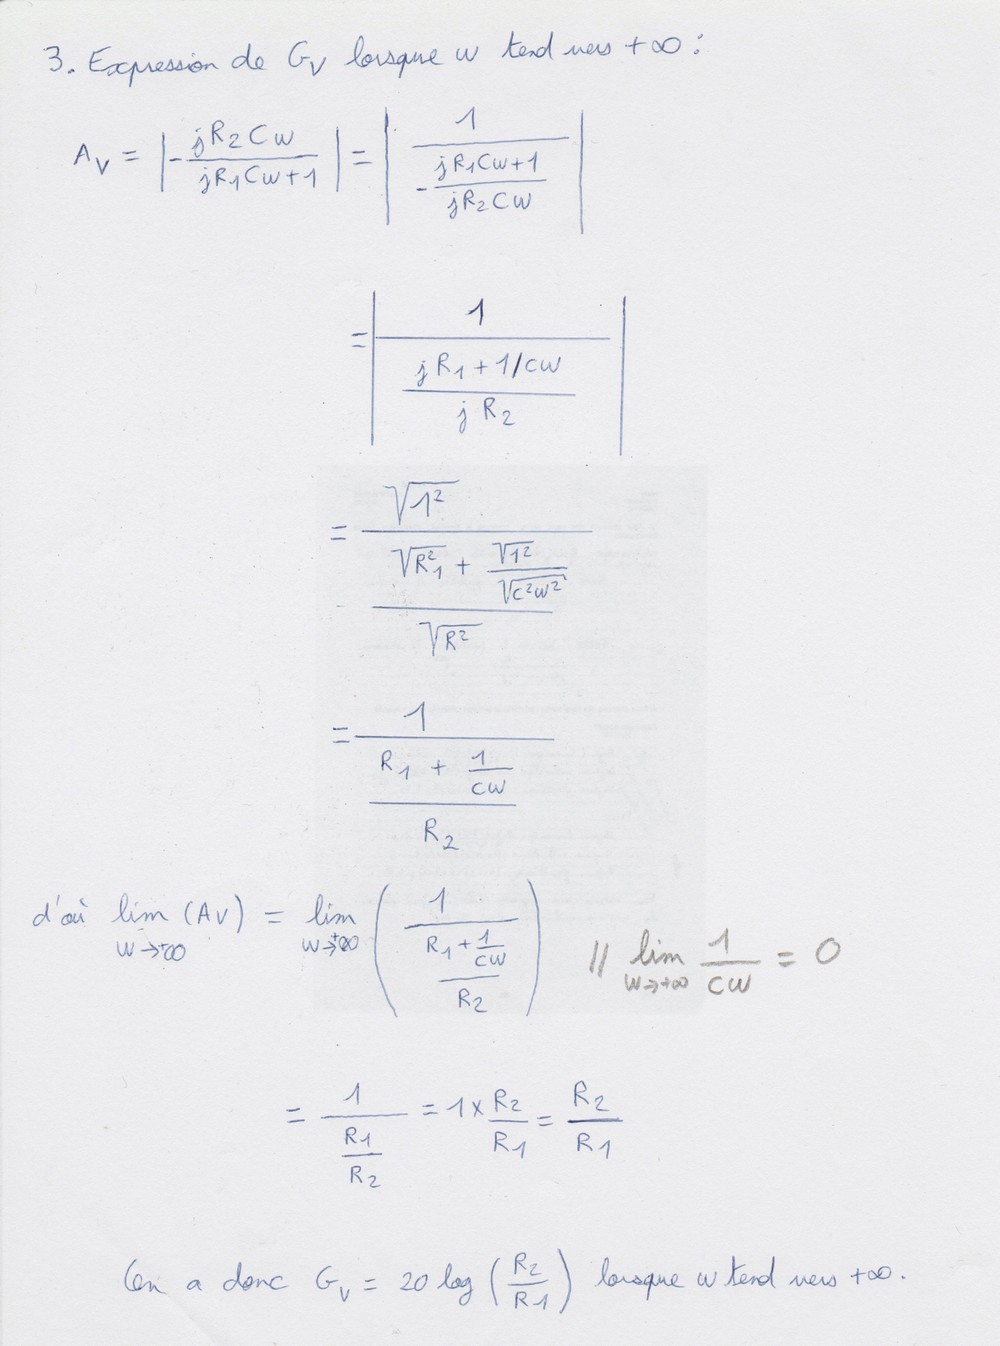 3. Expression de Gv lorsque w tend vers +∞ :
Av = |- jR2Cw / (jR1Cw+1)| = | 1 / (- (jR1Cw+1) / (jR2Cw)) |
= | 1 / ((jR1 + 1/Cw) / (jR2)) |
= √1² / ((√R1² + √1² / √C²w²) / √R²)
= 1 / ((R1 + 1/Cw) / R2)
d'où lim w→+∞ (Av) = lim w→+∞ ( 1 / ((R1 + 1/Cw) / R2) ) // lim w→+∞ 1/Cw = 0
= 1 / (R1/R2) = 1 × R2/R1 = R2/R1
On a donc Gv = 20 log (R2/R1) lorsque w tend vers +∞.